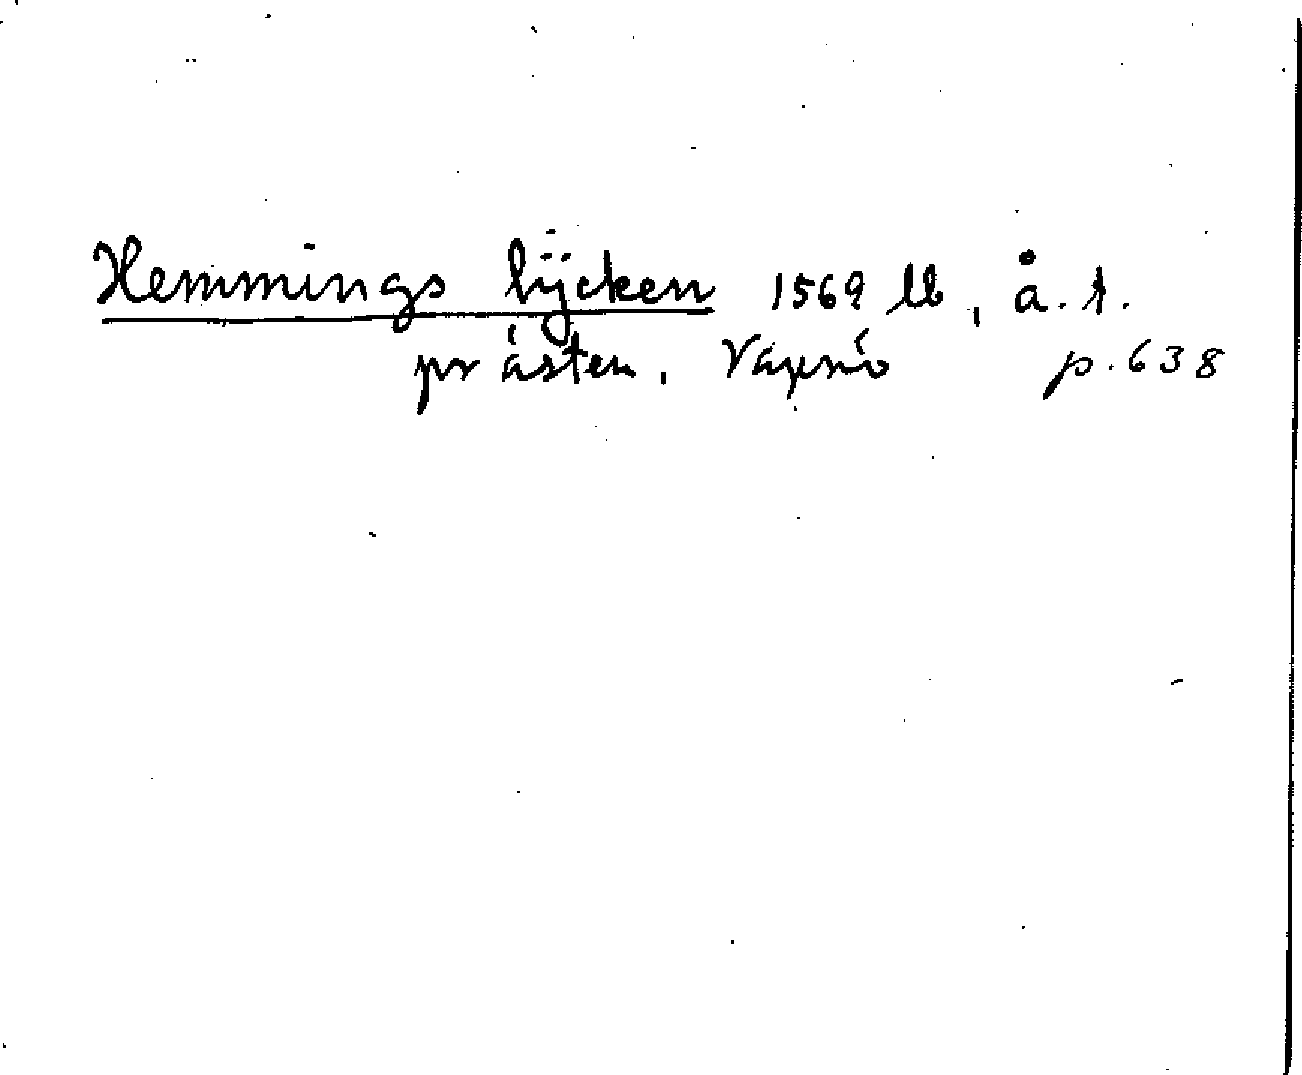 Hemmings lÿcken 1569 lb, å. t.
prästen. Vapnö p. 638